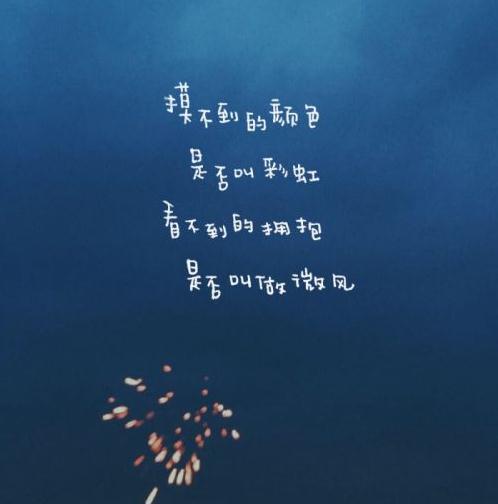 摸不到的颜色
是否叫彩虹
看不到的拥抱
是否叫做微风